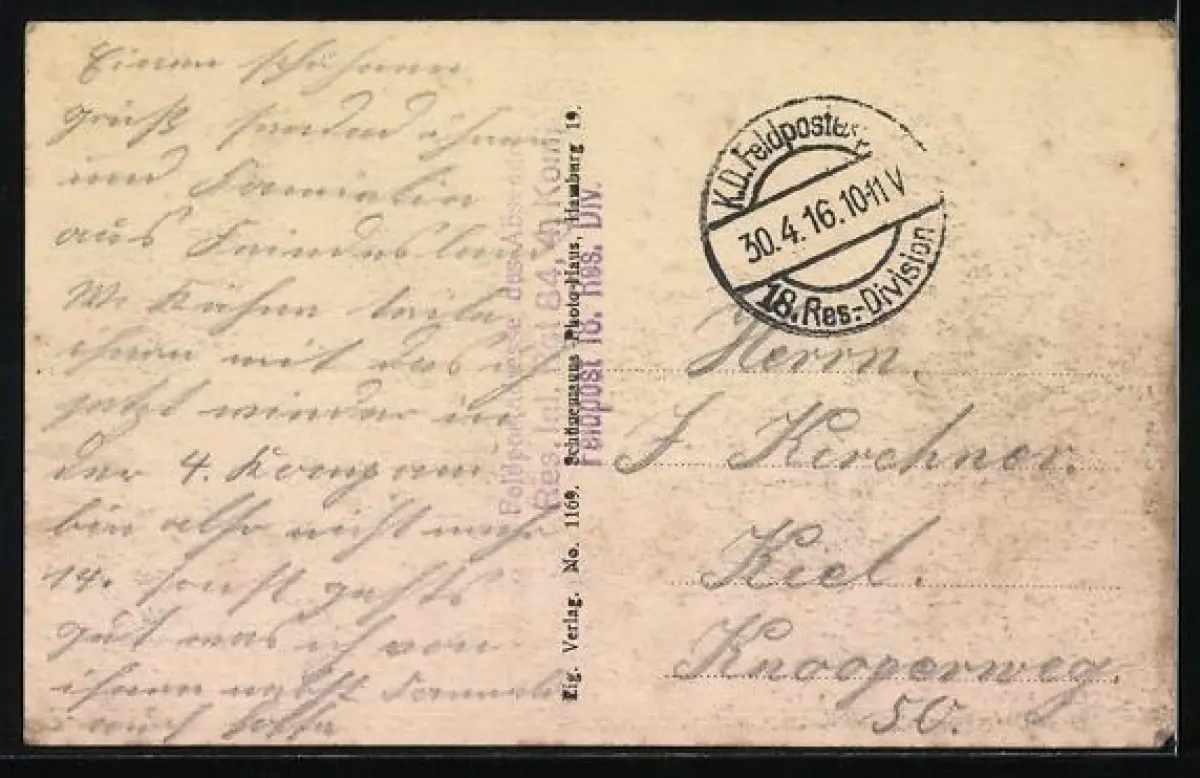 Einen schöhnen
gruß sendet ihnen
und Familie
aus Feindesland
W. Kähn teile
ihnen mit das ich
jetzt wieder in
der 4. Komp am
bin also nicht mehr
14. sonst gehts
gut was ich von
ihnen nebst Familie
auch hoffe
Feldpostadresse des Absenders
Res. Inf. Rgt 84, 4. Komp.
Feldpost 18. Res. Div.
Eig. Verlag. No. 1169. Schönemanns Photo-Haus, Hamburg 19.
K.D. Feldpostexp.
30.4.16.10-11 V
18. Res.-Division
Herrn.
J Kirchner.
Kiel.
Knooperweg.
50.